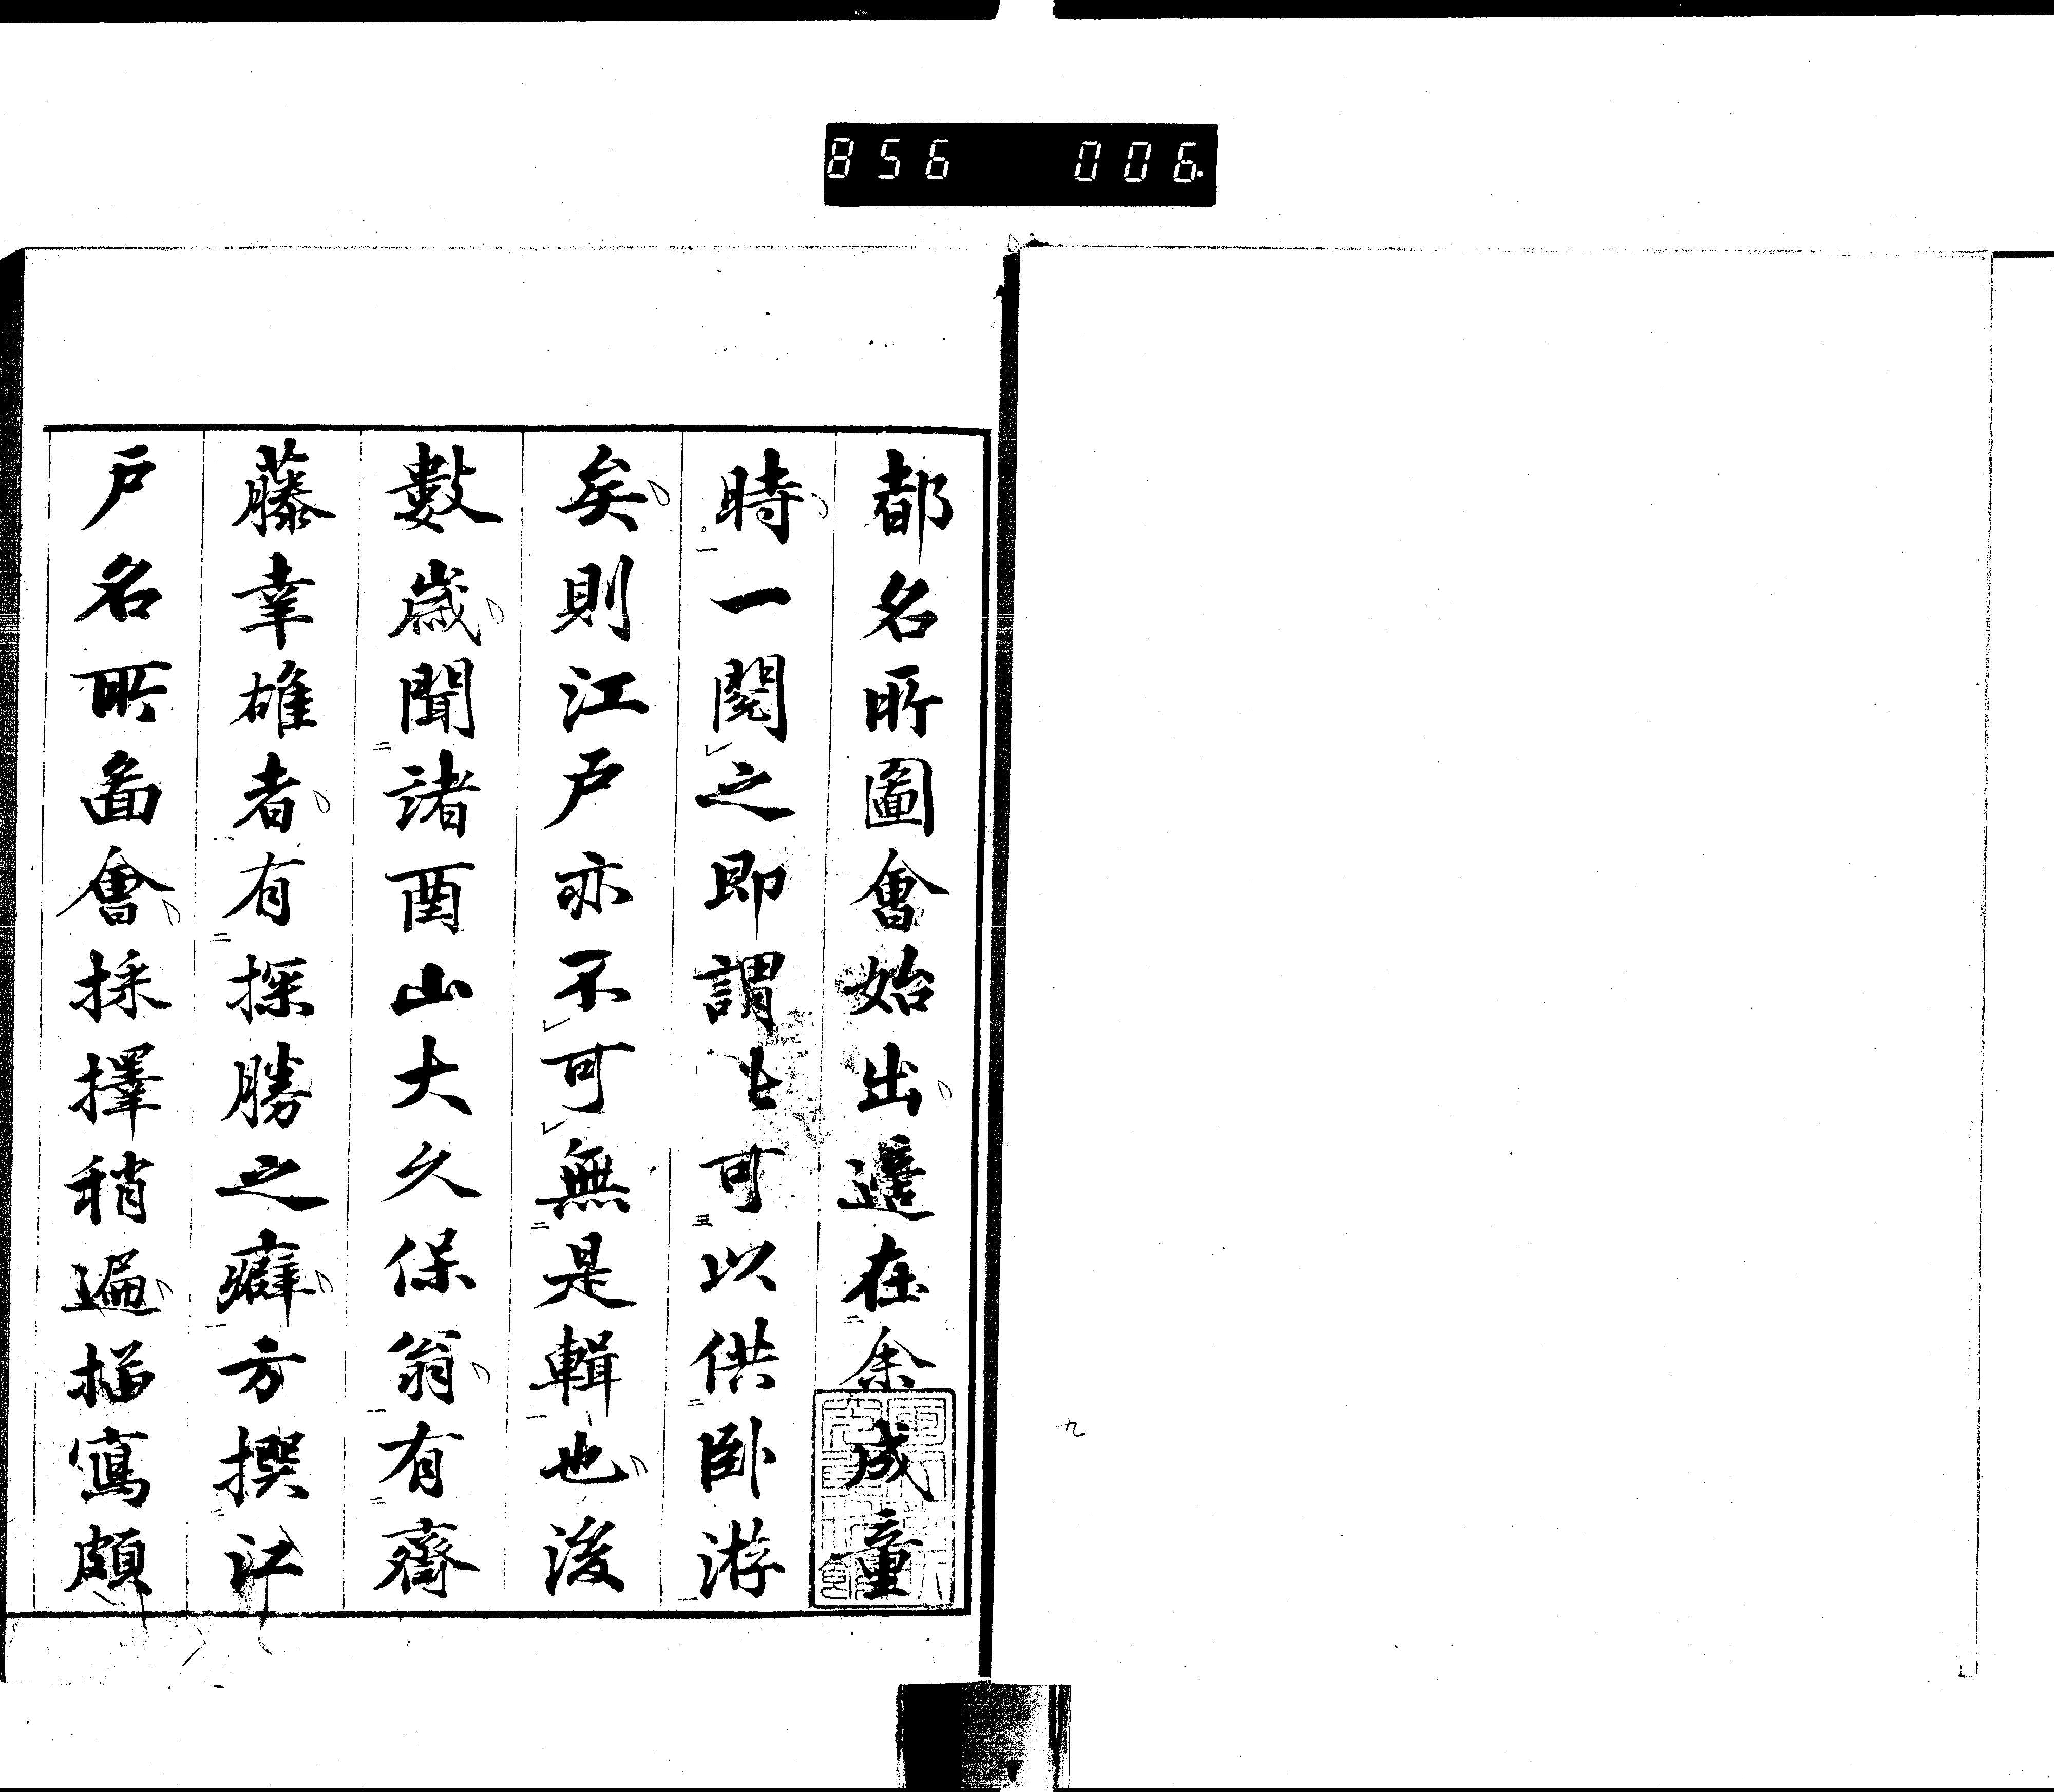 856 006.
都名所圖會始出遥在余成童
時一閲之即謂 可以供臥游
矣則江戸亦不可無是輯也後
數歳聞諸酉山大久保翁有齋
藤幸雄者有探勝之癖方撰江
戸名所啚會採擇稍遍描寫頗
九